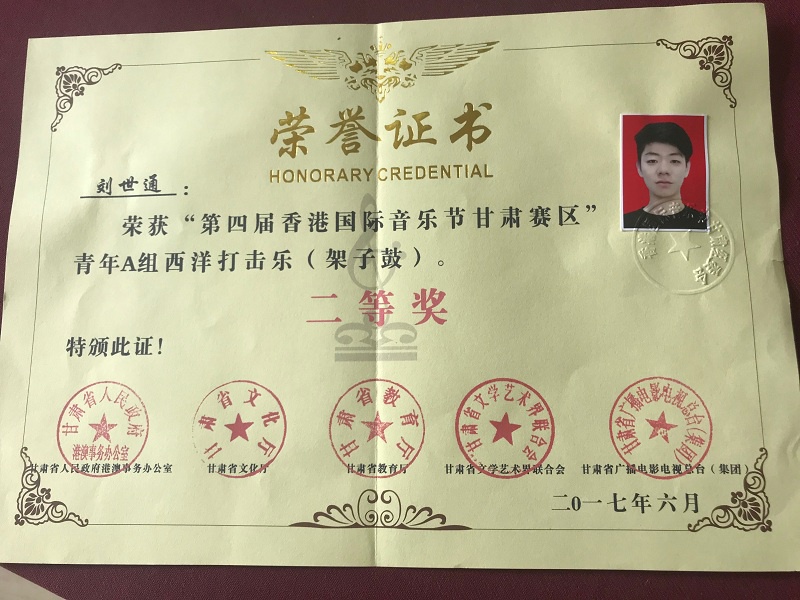 荣誉证书
HONORARY CREDENTIAL
刘世通：
荣获“第四届香港国际音乐节甘肃赛区”
青年A组西洋打击乐（架子鼓）。
二等奖
特颁此证！
甘肃省人民政府
港澳事务办公室
甘肃省文化厅
甘肃省教育厅
甘肃省文学艺术界联合会
甘肃省广播电影电视总台(集团)
甘肃省人民政府港澳事务办公室
甘肃省文化厅
甘肃省教育厅
甘肃省文学艺术界联合会
甘肃省广播电影电视总台（集团）
二0一七年六月